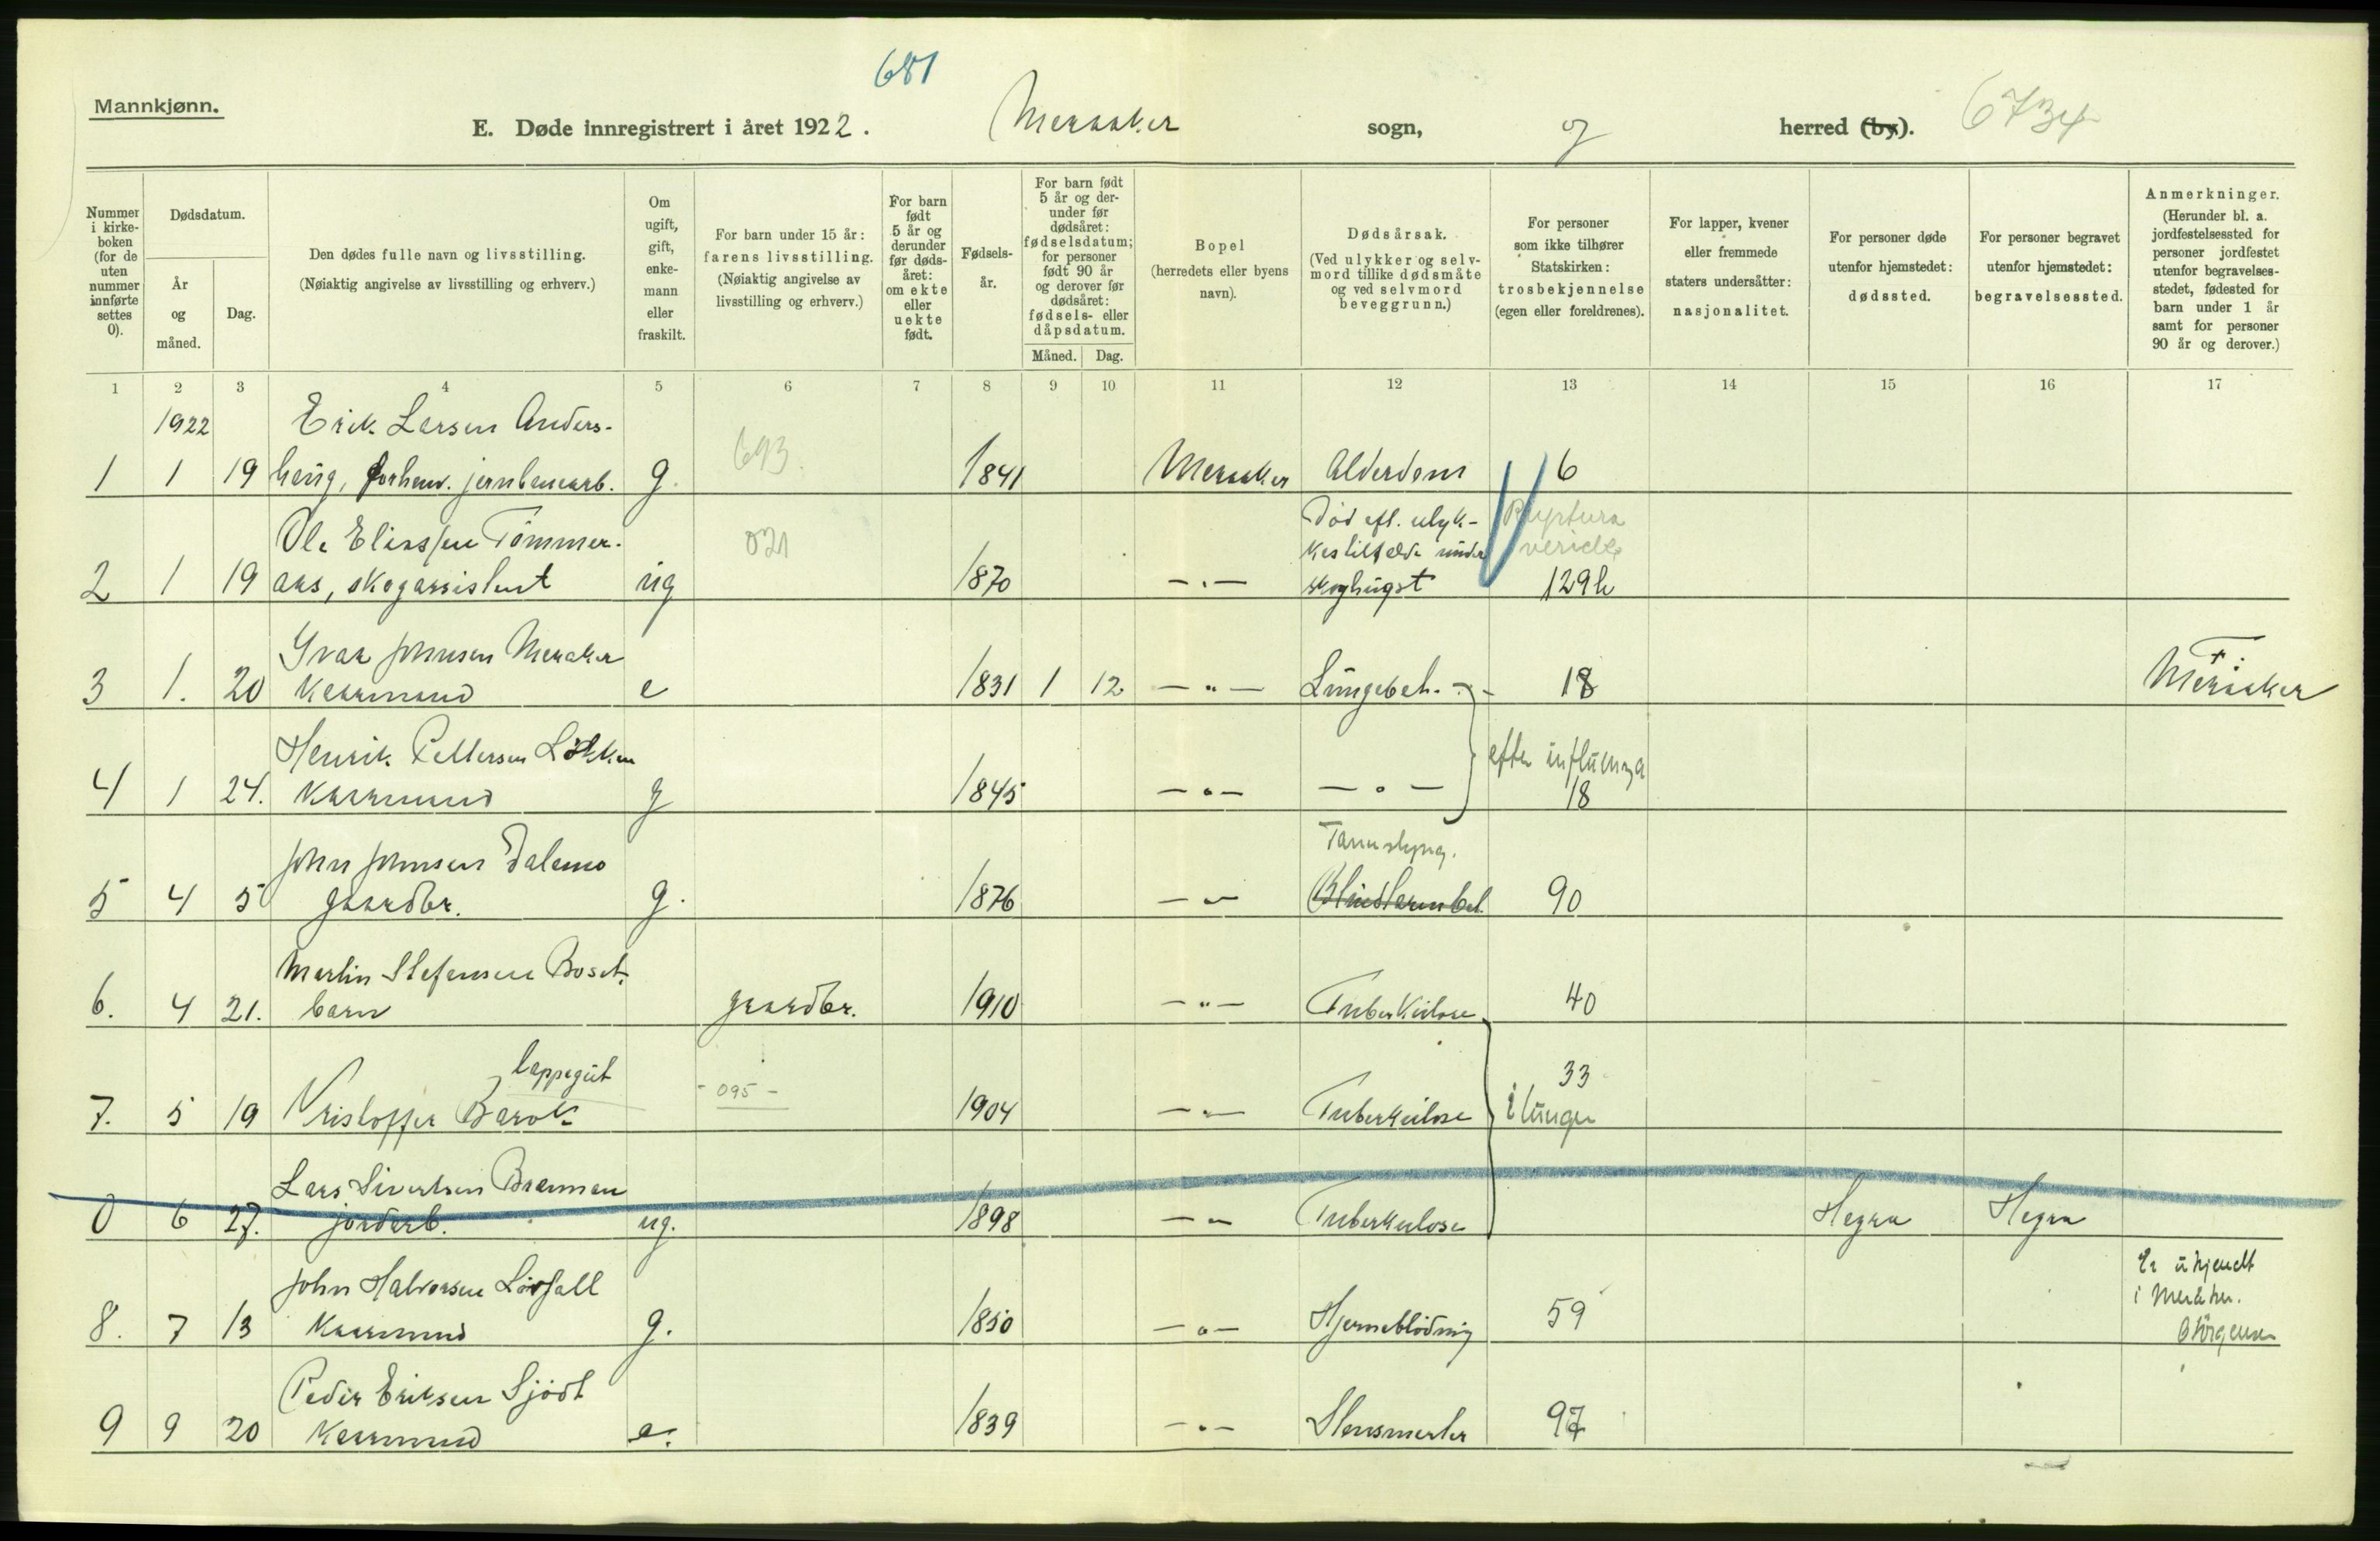 681
Mannkjønn.
E. Døde innregistrert i året 1922. Meraaker sogn, og herred (by). 6734
Nummer i kirkeboken (for de uten nummer innførte settes 0).
Dødsdatum.
År og måned.
Dag.
Den dødes fulle navn og livsstilling.
(Nøiaktig angivelse av livsstilling og erhverv.)
Om ugift, gift, enkemann eller fraskilt.
For barn under 15 år: farens livsstilling.
(Nøiaktig angivelse av livsstilling og erhverv.)
For barn født 5 år og derunder før dødsåret: om ekte eller uekte født.
Fødselsår.
For barn født 5 år og derunder før dødsåret: fødselsdatum; for personer født 90 år og derover før dødsåret: fødsels- eller dåpsdatum.
Måned. Dag.
Bopel (herredets eller byens navn).
Dødsårsak.
(Ved ulykker og selvmord tillike dødsmåte og ved selvmord beveggrunn.)
For personer som ikke tilhører Statskirken: trosbekjennelse (egen eller foreldrenes).
For lapper, kvener eller fremmede staters undersåtter: nasjonalitet.
For personer døde utenfor hjemstedet: dødssted.
For personer begravet utenfor hjemstedet: begravelsessted.
Anmerkninger.
(Herunder bl. a. jordfestelsessted for personer jordfestet utenfor begravelsesstedet, fødested for barn under 1 år samt for personer 90 år og derover.)
1 2 3 4 5 6 7 8 9 10 11 12 13 14 15 16 17
1922 Erik Larsen Anders-
1 1 19 haug, forhenv. jernbanearb. g. 693. 1841 Meraaker Alderdom 6
Ole Eliassen Tømmer- 021 Død eft. ulyk- Ruptura
kestilfelde under
2 1 19 aas, skogassistent ug 1870 —"— skoghugst 129h
Ivar Johnsen Meraker F.
3 1. 20 Kaarmand e 1831 1 12 —"— Lungebet. 18 Meraaker
Henrik Pettersen Løkken efter influenza
4 1 24. Kaarmand g 1845 —"— —"— 18
John Johnsen Dalamo Tarmslyng.
5 4 5 gaardbr. g. 1876 —"— Blindtarmbet. 90
Martin Stefensen Boset.
6. 4 21. barn gaardbr. 1910 —"— Tuberkulose 40
lappegut 33
7. 5 19 Kristoffer Barok - 095 - 1904 —"— Tuberkulose i lunger
Lars Sivertsen Brennan
0 6 27. jordarb. ug. 1898 —"— Tuberkulose Hegra Hegra
John Halvorsen Lövfall Er ukjendt
i Meraker.
8. 7 13 Kaarmand g. 1850 —"— Hjerneblødning 59
Peder Eriksen Sjödt
9 9 20 Kaarmand e. 1839 —"— Stensmerter 97